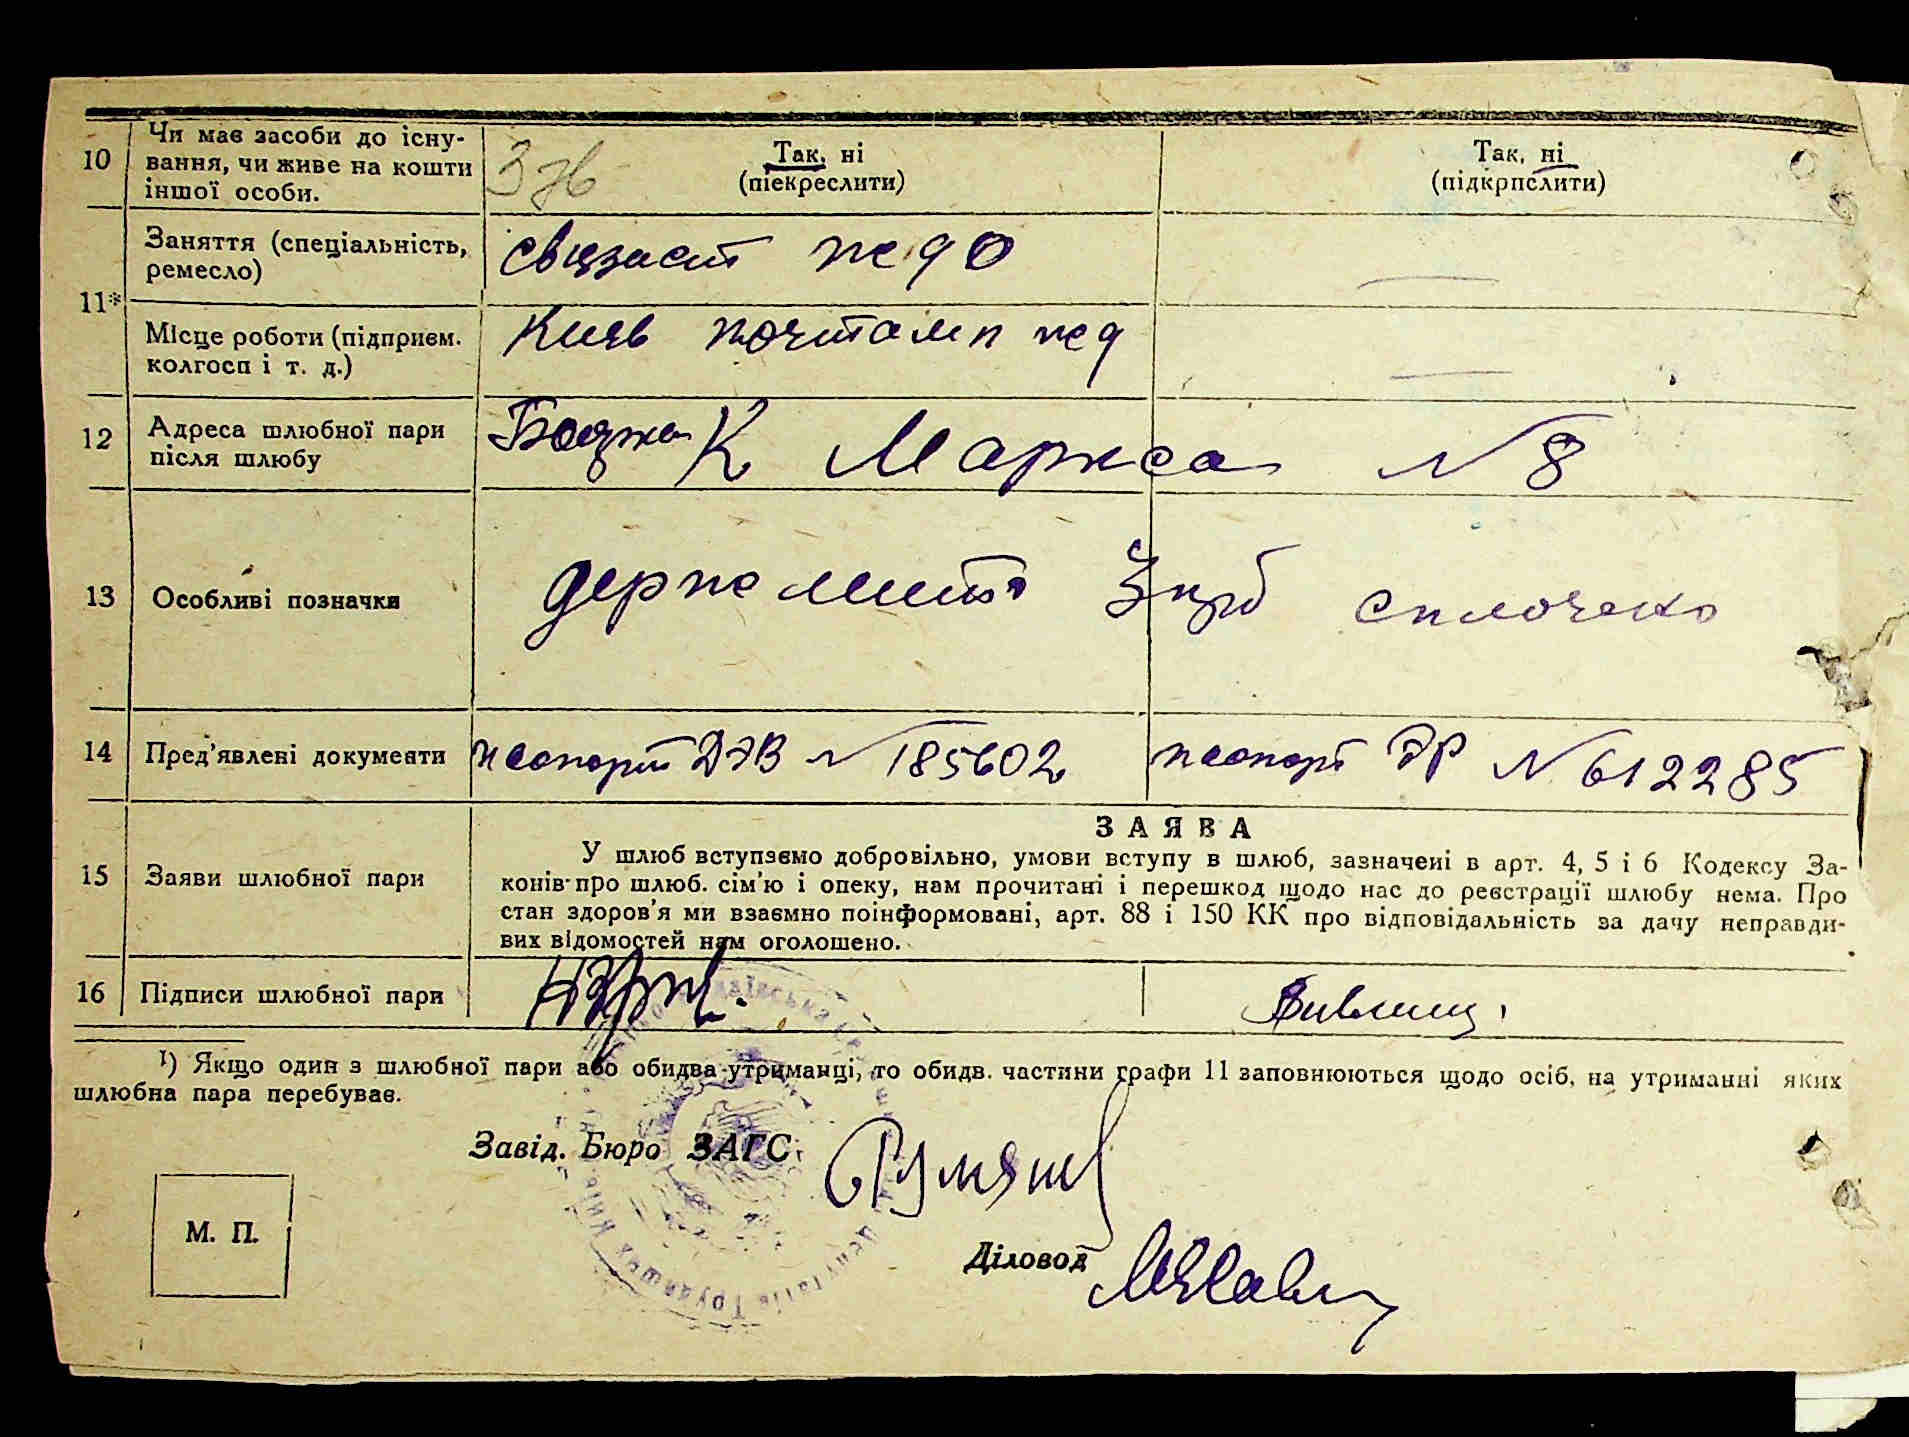 10
Чи має засоби до існу-
вання, чи живе на кошти
іншої особи.
376
Так, ні
(піекреслити)
Так, ні
(підкрпслити)
11*
Заняття (спеціальність,
ремесло)
Місце роботи (підприєм.
колгосп і т. д.)
Київ почтамп
12
Адреса шлюбної пари
після шлюбу
К Маркса № 8
13
Особливі позначки
держ мито 3 крб сплочено
14
Пред'явлені документи
паспорт ДЭВ № 185602
паспорт ЭР № 612285
15
Заяви шлюбної пари
ЗАЯВА
У шлюб вступаємо добровільно, умови вступу в шлюб, зазначені в арт. 4, 5 і 6 Кодексу За-
конів про шлюб. сім'ю і опеку, нам прочитані і перешкод щодо нас до реєстрації шлюбу нема. Про
стан здоров'я ми взаємно поінформовані, арт. 88 і 150 КК про відповідальність за дачу неправди-
вих відомостей нам оголошено.
16
Підписи шлюбної пари
1) Якщо один з шлюбної пари або обидва утриманці, то обидв. частини графи 11 заповнюються щодо осіб, на утриманні яких
шлюбна пара перебуває.
Завід. Бюро ЗАГС
Діловод
М. П.
Депутатів Трудящих